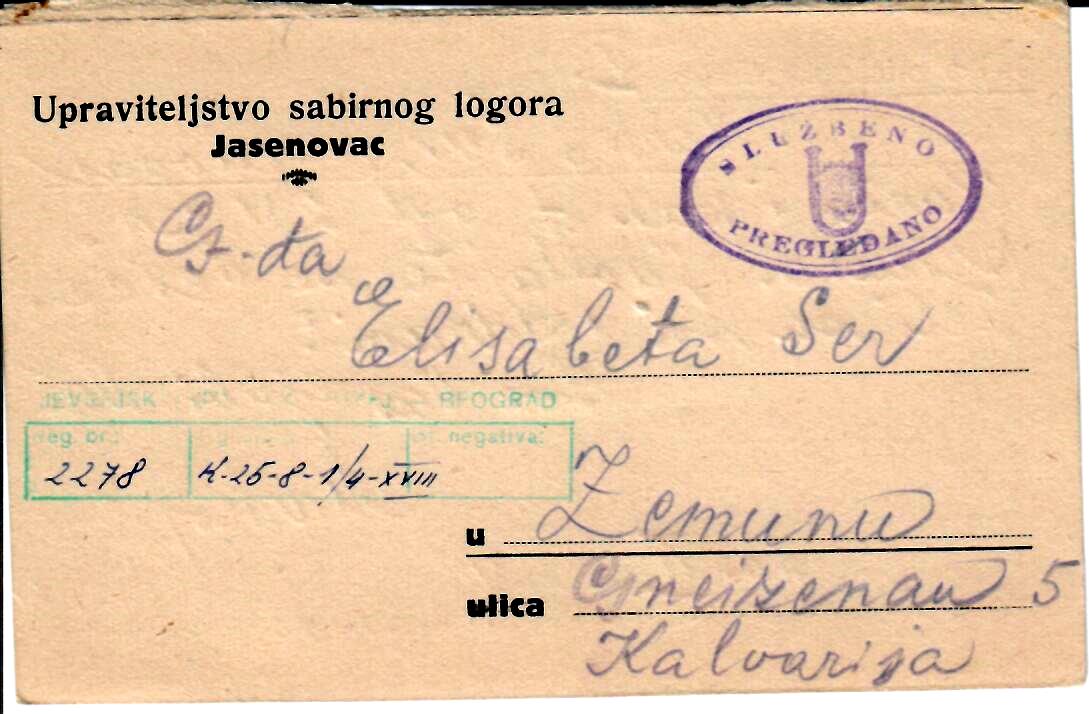 Upraviteljstvo sabirnog logora
Jasenovac
SLUŽBENO
PREGLEDANO
G-đa
Elisabeta Ser
BEOGRAD
reg. br.: negativa:
2278 K-25-8-1/4-XVIII
u Zemunu
ulica Gneizenau 5
Kalvarija